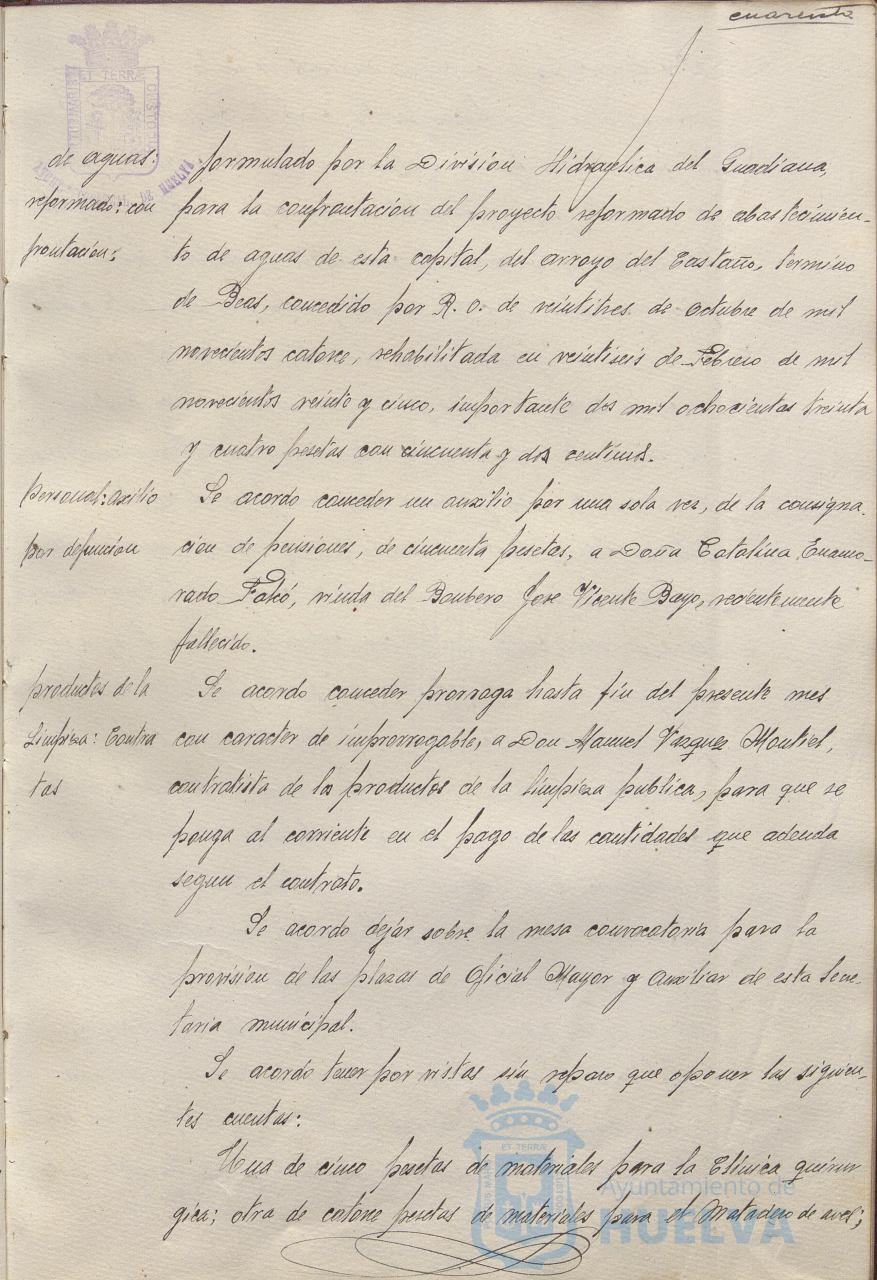 cuarenta
de aguas:
reformado: con
frontacion:
formulado por la Division Hidraulica del Guadiana,
para la confrontacion del proyecto reformado de abastecimien-
to de aguas de esta capital, del arroyo del Castaño, termino
de Beas, concedido por R. O. de veintitres de octubre de mil
novecientos catorce, rehabilitada en veintiseis de Febrero de mil
novecientos veinte y cinco, importante dos mil ochocientas treinta
y cuatro pesetas con cincuenta y dos centimos.
personal: auxilio
por defuncion
Se acordo conceder un auxilio por una sola vez, de la consigna-
cion de pensiones, de cincuenta pesetas, a Doña Catalina Enamo-
rado Falcó, viuda del Bombero Jose Vicente Bayo, recientemente
fallecido.
productos de la
Limpieza: Contra
tas
Se acordo conceder prorroga hasta fin del presente mes
con caracter de improrrogable, a Don Manuel Vazquez Montiel,
contratista de los productos de la limpieza publica, para que se
ponga al corriente en el pago de las cantidades que adeuda
segun el contrato.
Se acordo dejar sobre la mesa convocatoria para la
provision de las plazas de Oficial Mayor y Auxiliar de esta Secre-
taria municipal.
Se acordo tener por vistas sin reparo que oponer las siguien-
tes cuentas:
Una de cinco pesetas de materiales para la Clinica quirur
gica; otra de catorce pesetas de materiales para el Matadero de aves;
ET TERRÆ
DE HUELVA
ET TERRÆ
Ayuntamiento de
HUELVA